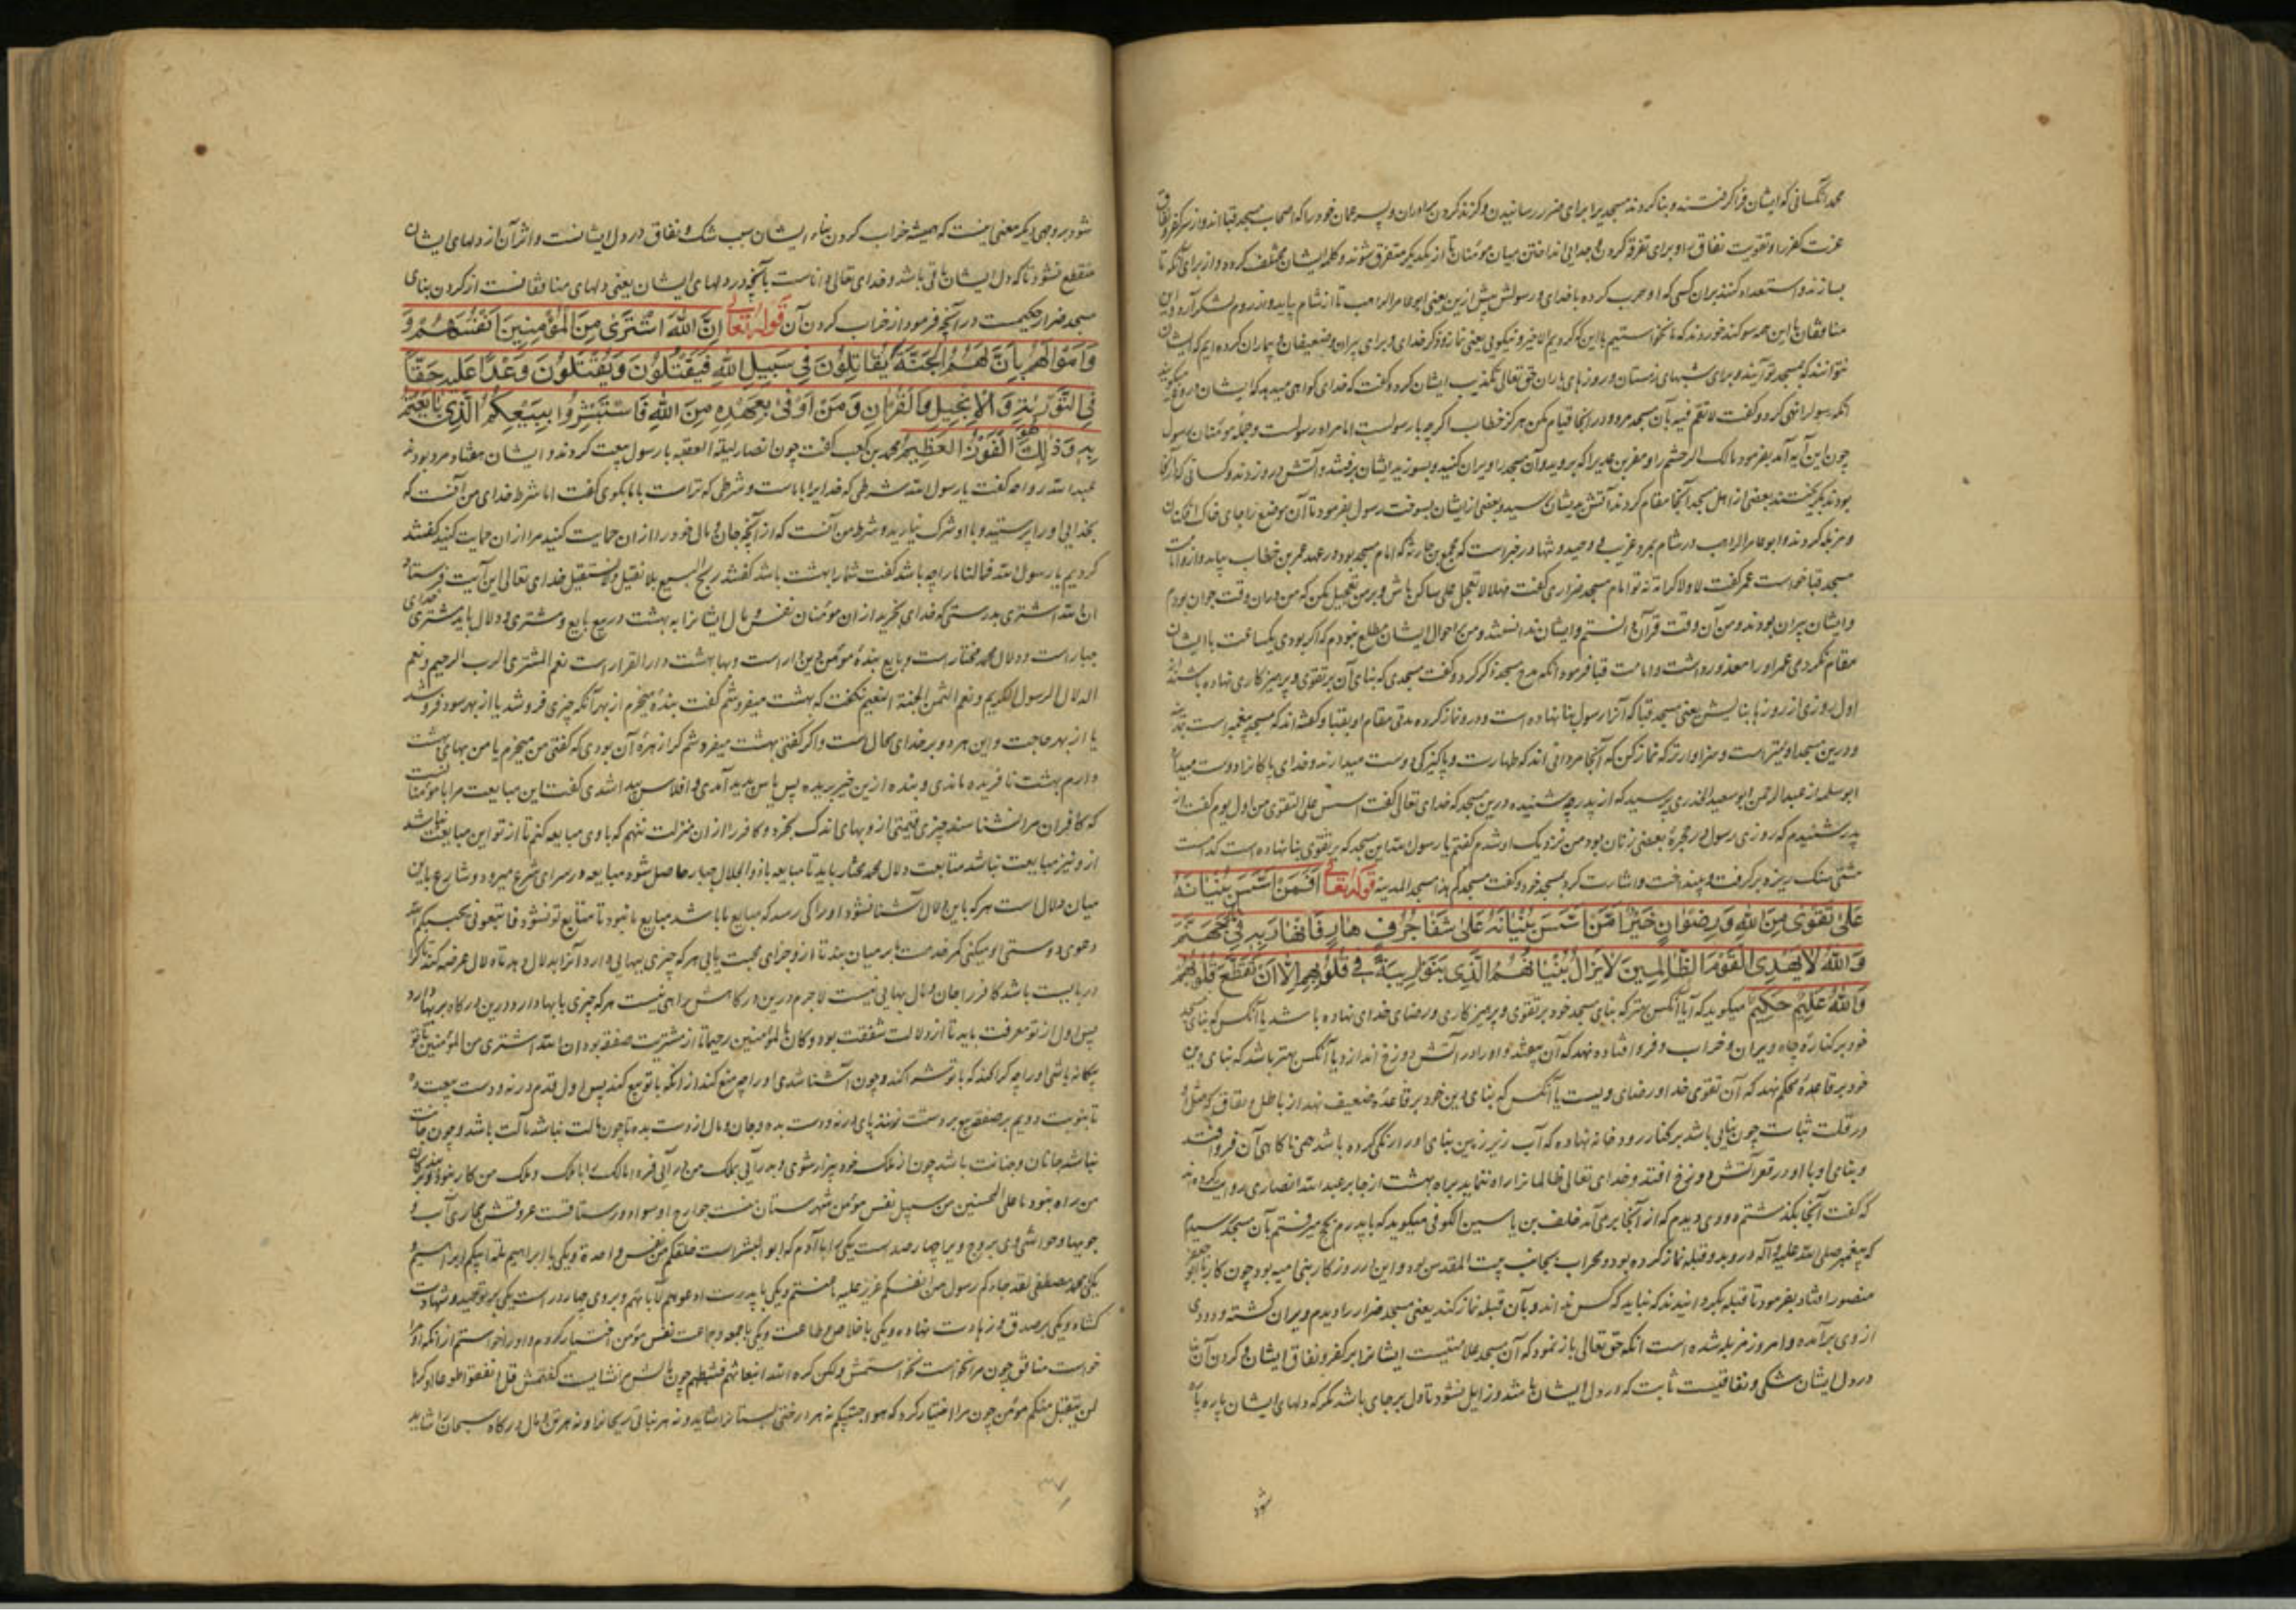 محمد آنکسانی که ایشان فرا گرفتند و بنا کردند مسجدیرا برای ضرر رسانیدن و گزند کردن برادران و پسر عمان خود را که اصحاب مسجد قبا اند و از سر کفر و نفاق
عزت کفر را و تقویت نفاق را و برای تفرقه کردن و جدایی انداختن میان مومنان تا از یکدیگر متفرق شوند و کلمه ایشان مختلف کرده و از برای آنکه تا
بسازند و استعداد کنند بر آن کسی که او حرب کرده با خدای و رسولش پیش ازین یعنی ابو عامر الراهب تا از شام بیاید و از روم لشکر آرد و این
منافقان با این همه سوگند خوردند که ما نخواستیم باین که کردیم الا خیر و نیکویی یعنی نماز و ذکر خدای و برای پیران و ضعیفان و بیماران کرده ایم که ایشان
نتوانند که بمسجد تو آیند و برای شبهای زمستان و روزهای باران حق تعالی تکذیب ایشان کرد و گفت که خدای گواهی میدهد که ایشان دروغ میگویند
آنکه رسول را نهی کرد و گفت لا تقم فیه بآن مسجد مرو و در آنجا قیام مکن هرگز خطاب اگر چه با رسولست اما مراد رسولست و جمله مومنان رسول
چون این آیه آمد بفرمود مالک الدخشم را و معن بن عدی را که بروید و آن مسجد را ویران کنید و بسوزید ایشان برفتند و آتش در زدند و کسانی که آنجا
بودند بگریختند بعضی از اهل مسجد آنجا مقام کردند آتش بدیشان رسید و بعضی از ایشان بسوخت رسول بفرمود تا آن موضع را جای خاک افکندن
و مزبله کردند و ابو عامر الراهب در شام بمرد غریب و وحید و تنها و در خبر است که مجمع بن حارثه که امام مسجد بود در عهد عمر بن خطاب بیامد و از و امامت
مسجد قبا خواست عمر گفت لا و لا کرامه نه تو امام مسجد ضراری گفت مهلا لا تعجل علی ساکن باش و بر من تعجیل مکن که من در آن وقت جوان بودم
و ایشان پیران بودند و من آن وقت قرآن دانستم و ایشان ندانستند و من بر احوال ایشان مطلع نبودم که اگر بودی یکساعت با ایشان
مقام نکردمی عمر او را معذور داشت و امامت قبا فرمود آنکه مدح مسجد ذکر کرد و گفت مسجدی که بنای آن بر تقوی و پرهیز کاری نهاده باشند از
اول روزی از روزها بنایش یعنی مسجد قبا که آنرا رسول بنا نهاده است و در و نماز کرده مدتی مقام او بقبا و گفته اند که مسجد پیغمبر است بمدینه
و درین مسجد اولیتر است و سزاوار تر که نماز کنی که آنجا مردانی اند که طهارت و پاکیزگی دوست میدارند و خدای پاکانرا دوست میدارد
ابو سلمه از عبد الرحمن ابو سعید الخدری پرسید که از پدر چه شنیده درین مسجد که خدای تعالی گفت اسس علی التقوی من اول یوم گفت از
پدر شنیدم که روزی رسول در حجره بعضی زنان بود من نزدیک او شدم گفتم یا رسول الله این مسجد که بر تقوی بنا نهاده است کدامست
مشتی سنگ ریزه برگرفت و بینداخت و اشارت کرد بمسجد خود و گفت مسجدکم هذا مسجد المدینه قوله تعالی افمن اسس بنیانه
علی تقوی من الله و رضوان خیر امن اسس بنیانه علی شفا جرف هار فانهار به فی جهنم
والله لا یهدی القوم الظالمین لا یزال بنیانهم الذی بنوا ریبة فی قلوبهم الا ان تقطع قلوبهم
والله علیم حکیم میگوید که آیا آنکس بهتر که بنای مسجد خود بر تقوی و پرهیز کاری و رضای خدای نهاده باشد یا آنکس که بنای مسجد
خود بر کناره چاه ویران و خراب و فرو افتاده نهد که آن بیفتد و او را در آتش دوزخ اندازد یا آنکس بهتر باشد که بنای دین
خود بر قاعده محکم نهد که آن تقوی خدا و رضای ویست یا آنکس که بنای دین خود بر قاعده ضعیف نهد از باطل و نفاق که مثل او
در قلت ثبات چون بنایی باشد بر کنار رود خانه نهاده که آب زیر زمین بنای او را تهی کرده باشد همی ناگاهی آن فرو افتد
و بنای او با او در قعر آتش دوزخ افتد و خدای تعالی ظالمانرا راه ننماید براه بهشت از جابر عبد الله انصاری روایت کرده اند
که گفت آنجا بگذشتم و دودی دیدم که از آنجا بر می آمد خلف بن یاسین الکوفی میگوید که با پدرم بحج میرفتم بآن مسجد رسیدیم
که پیغمبر صلی الله علیه و آله در و بدو قبله نماز کرده بود و محراب بجانب بیت المقدس بود و این در روزگار بنی امیه بود چون کار با ابو جعفر
منصور افتاد بفرمود تا قبله بگردانیدند که نباید که کس نداند و بآن قبله نماز کند یعنی مسجد ضرار را دیدم ویران گشته و دودی
از وی بر آمده و امروز مزبله شده است آنکه حق تعالی باز نمود که آن مسجد علامتیست ایشانرا بر کفر و نفاق ایشان و کردن آن بنا
در دل ایشان شکی و نفاقیست ثابت که در دل ایشان باشد و زایل نشود تا دل بر جای باشد مگر که دلهای ایشان پاره پاره
شود
شود بر وجهی دیگر معنی اینست که همیشه خراب کردن بناء ایشان سبب شک و نفاق در دل ایشانست و اثر آن از دلهای ایشان
منقطع نشود تا که دل ایشان باقی باشد و خدای تعالی داناست بآنچه در دلهای ایشان یعنی دلهای منافقانست از کردن بنای
مسجد ضرار حکیمست در آنچه فرمود از خراب کردن آن قوله تعالی ان الله اشتری من المؤمنین انفسهم و
و اموالهم بان لهم الجنة یقاتلون فی سبیل الله فیقتلون و یقتلون وعدا علیه حقا
فی التوریة و الانجیل و القران و من اوفی بعهده من الله فاستبشروا ببیعکم الذی بایعتم
به و ذلک هو الفوز العظیم محمد بن کعب گفت چون انصار لیلة العقبه با رسول بیعت کردند و ایشان هفتاد مرد بودند
عبد الله رواحه گفت یا رسول الله شرطی که خدایرا با ماست و شرطی که تراست با ما بگوی گفت اما شرط خدای من آنست که
بخدایی او را پرستید و با او شرک نیارید و شرط من آنست که از آنچه جان و مال خود را از آن حمایت کنید مرا از آن حمایت کنید گفتند
کردیم یا رسول الله فمالنا ما را چه باشد گفت شما را بهشت باشد گفتند ربح البیع بلا نقیل و لا نستقیل خدای تعالی این آیت فرستاد
ان الله اشتری بدرستی که خدای بخرید از آن مومنان نفس و مال ایشانرا به بهشت در بیع بایع و مشتری و دلال باید مشتری خدای
جبار است و دلال محمد مختار است و بایع بنده مومن دین دار است و بها بهشت دار القرار است نعم المشتری الرب الرحیم و نعم
الدلال الرسول الکریم و نعم الثمن الجنة النعیم نگفت که بهشت میفروشم گفت بنده میخرم از بهر آنکه چیزی فروشد یا از بهر سود فروشد
یا از بهر حاجت و این هر دو بر خدای محال است و اگر گفتی بهشت میفروشم کرا زهره آن بودی که گفتی من میخرم یا من بهای بهشت
دارم بهشت نا خریده ماندی و بنده ازین خیر بریده پس یاس پدید آمدی و افلاس پیدا شدی گفت این مبایعت مرا با مومنانست
که کافران مرا نشناسند چیزی قیمتی از و بهای اندک بخرد و کافر را از آن منزلت ننهم که با وی مبایعه کنم تا از تو این مبایعت نباشد
از و نیز مبایعت نباشد متابعت دلال محمد مختار باید تا مبایعه با ذو الجلال جبار حاصل شود مبایعه در سرای شرع میرود و شارع باین
میان دلال است هر که باین دلال آشنا نشود او را کی رسد که مبایع ما باشد مبایع ما نبود تا متابع تو نشود فاتبعونی یحببکم الله
دعوی دوستی او میکنی کمر خدمت ما بر میان بند تا از و جزای محبت یابی هر که چیزی بیهایی دارد آنرا بدلال دهد تا دلال عرضه کند تا کرا
در بایست باشد کافر را جان و مال بهایی نیست لاجرم درین درگاهش راهی نیست هر که چیزی با بها دارد درین درگاه بر بها دارد
پس اول از تو معرفت باید تا از و دلالت شفقت بود و کان بالمؤمنین رحیما تا از مشتریت صفقه بود ان الله اشتری من المؤمنین تا تو
بیگانه باشی او را چه کرا کند که با تو شرا کند و چون آشنا شدی او را چه منع کند از آنکه با تو بیع کند پس اول قدم در نه و دست بیعت ده
تا بنوبت دویم بر صفقه بیع بر دستت زنند پای در نه و دست بده و جان و مال از دست بده تا چون مالت نباشد مالت باشد و چون جانت
نباشد جانان و جنانت باشد چون از ملک خود بیزار شوی و بدر آیی بملک من در آیی
من راه نبود ما علی المحسنین من سبیل نفس مومن شهرستان منست جوارح او سواد و رستاقست عروقش مجاری آب و
جویها و حواشی وی بروج و یرا چهار حد است یکی با آدم که ابو البشر است خلقکم من نفس واحدة و یکی با ابراهیم ملة ابیکم ابراهیم و
یکی با محمد مصطفی لقد جاءکم رسول من انفسکم عزیز علیه ما عنتم و یکی با پدرت ادعوهم لآبائهم و بر وی چهار در است یکی بر توحید و شهادت
گشاده و یکی بر صدق و زهادت نهاده و یکی با خلاص و طاعت و یکی با جمعه و جماعت نفس مومن اختیار کردم و او را خواستم از آنکه او مرا
خواست منافق چون مرا نخواست نخواستمش ولکن کره الله انبعاثهم فثبطهم چون مالش انشایست گفتمش قل انفقوا طوعا او کرها
لن یتقبل منکم مومن چون مرا اختیار کرد که هو اجتبیکم نه هر درختی بستانرا شاید و نه هر نباتی ریحانرا و نه هر تن و مال درگاه سبحان را شاید